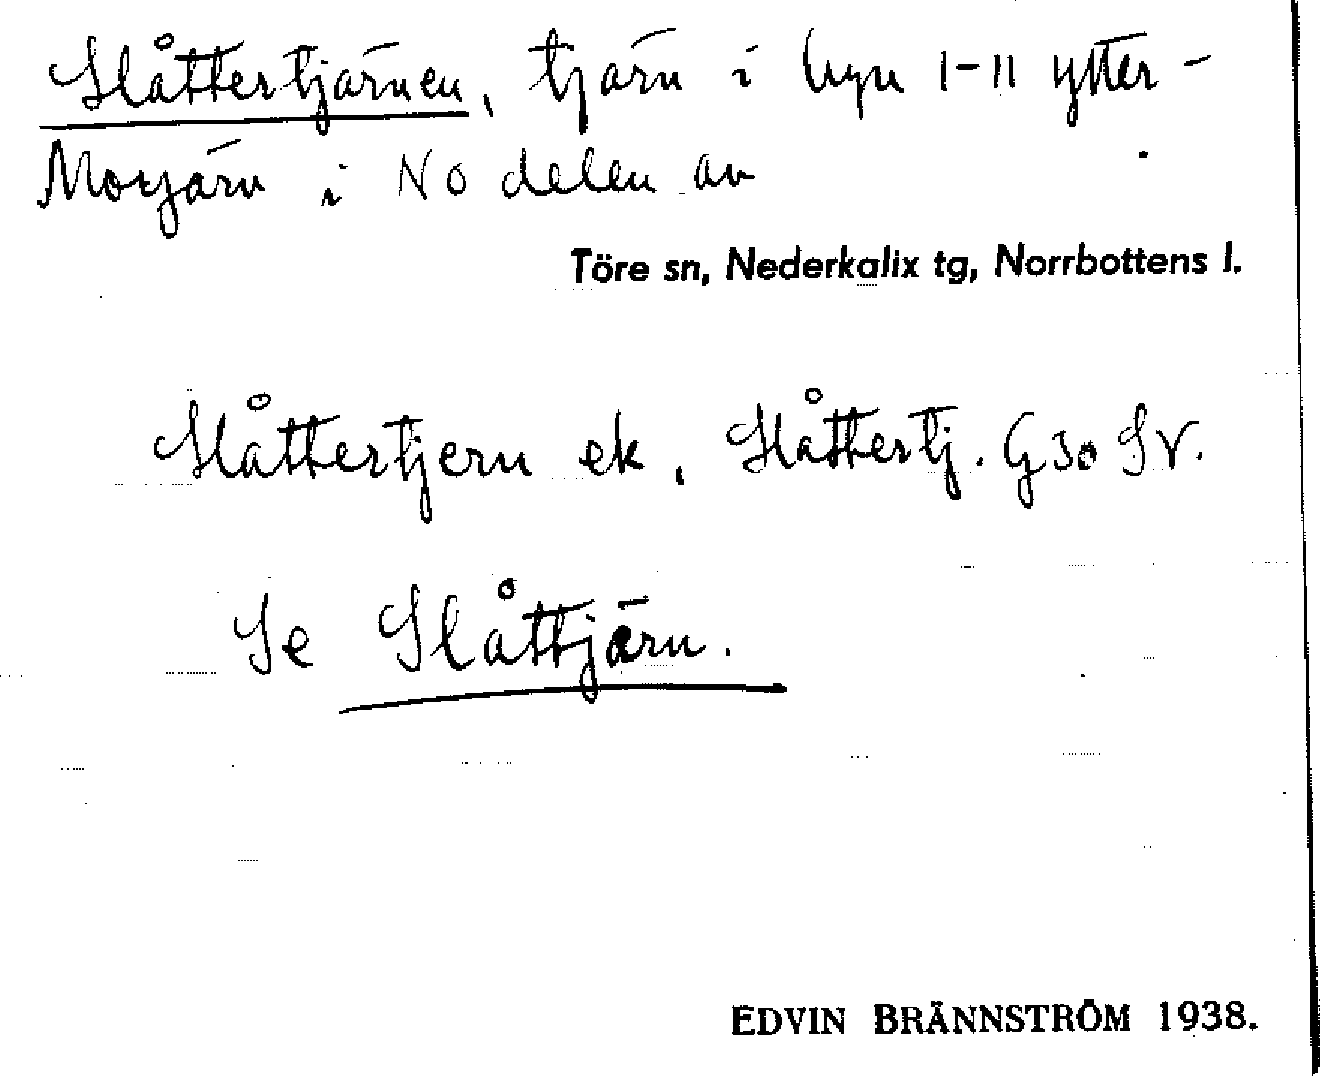 Slåttertjärnen, tjärn i byn 1-11 ytter-
Morjärv i NO delen av
Töre sn, Nederkalix tg, Norrbottens l.
Slåttertjern ek, Slåttertj. G30 SV.
Se Slåttjärn.
EDVIN BRÄNNSTRÖM 1938.